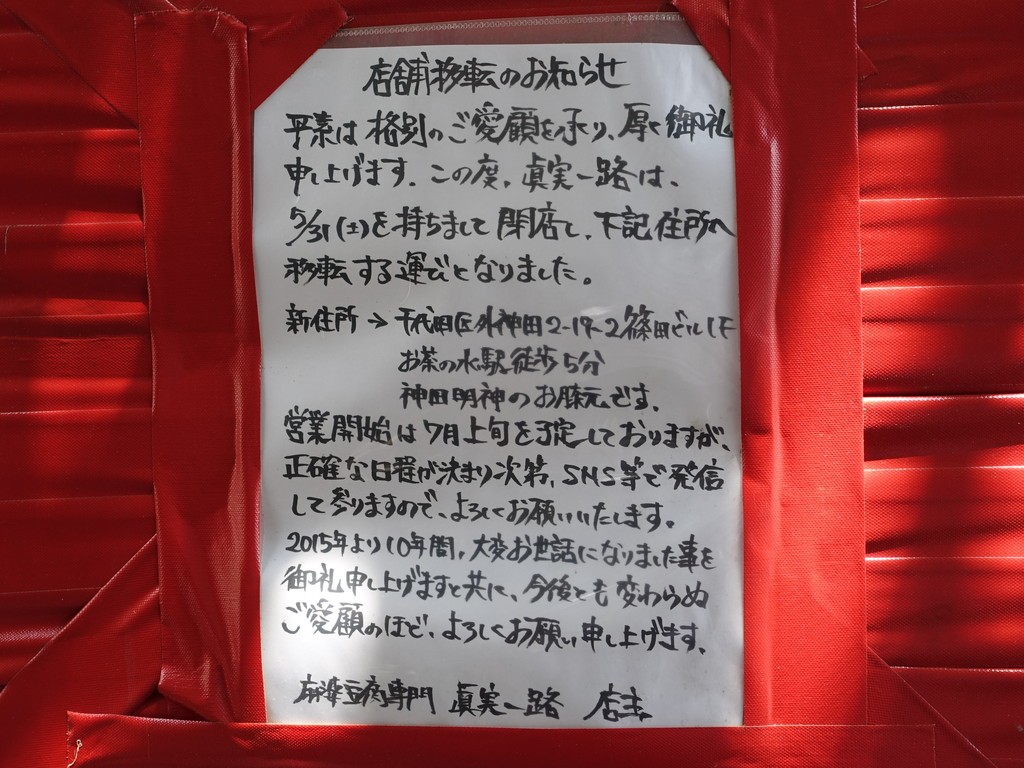 店舗移転のお知らせ
平素は格別のご愛顧を承り、厚く御礼
申し上げます。この度、真実一路は、
5/31(土)を持ちまして閉店し、下記住所へ
移転する運びとなりました。
新住所→千代田区外神田2-19-2篠田ビル1F
お茶の水駅徒歩5分
神田明神のお膝元です。
営業開始は7月上旬を予定しておりますが、
正確な日程が決まり次第、SNS等で発信
して参りますので、よろしくお願いいたします。
2015年より10年間、大変お世話になりました事を
御礼申し上げますと共に、今後とも変わらぬ
ご愛顧のほど、よろしくお願い申し上げます。
麻婆豆腐専門 眞実一路 店主